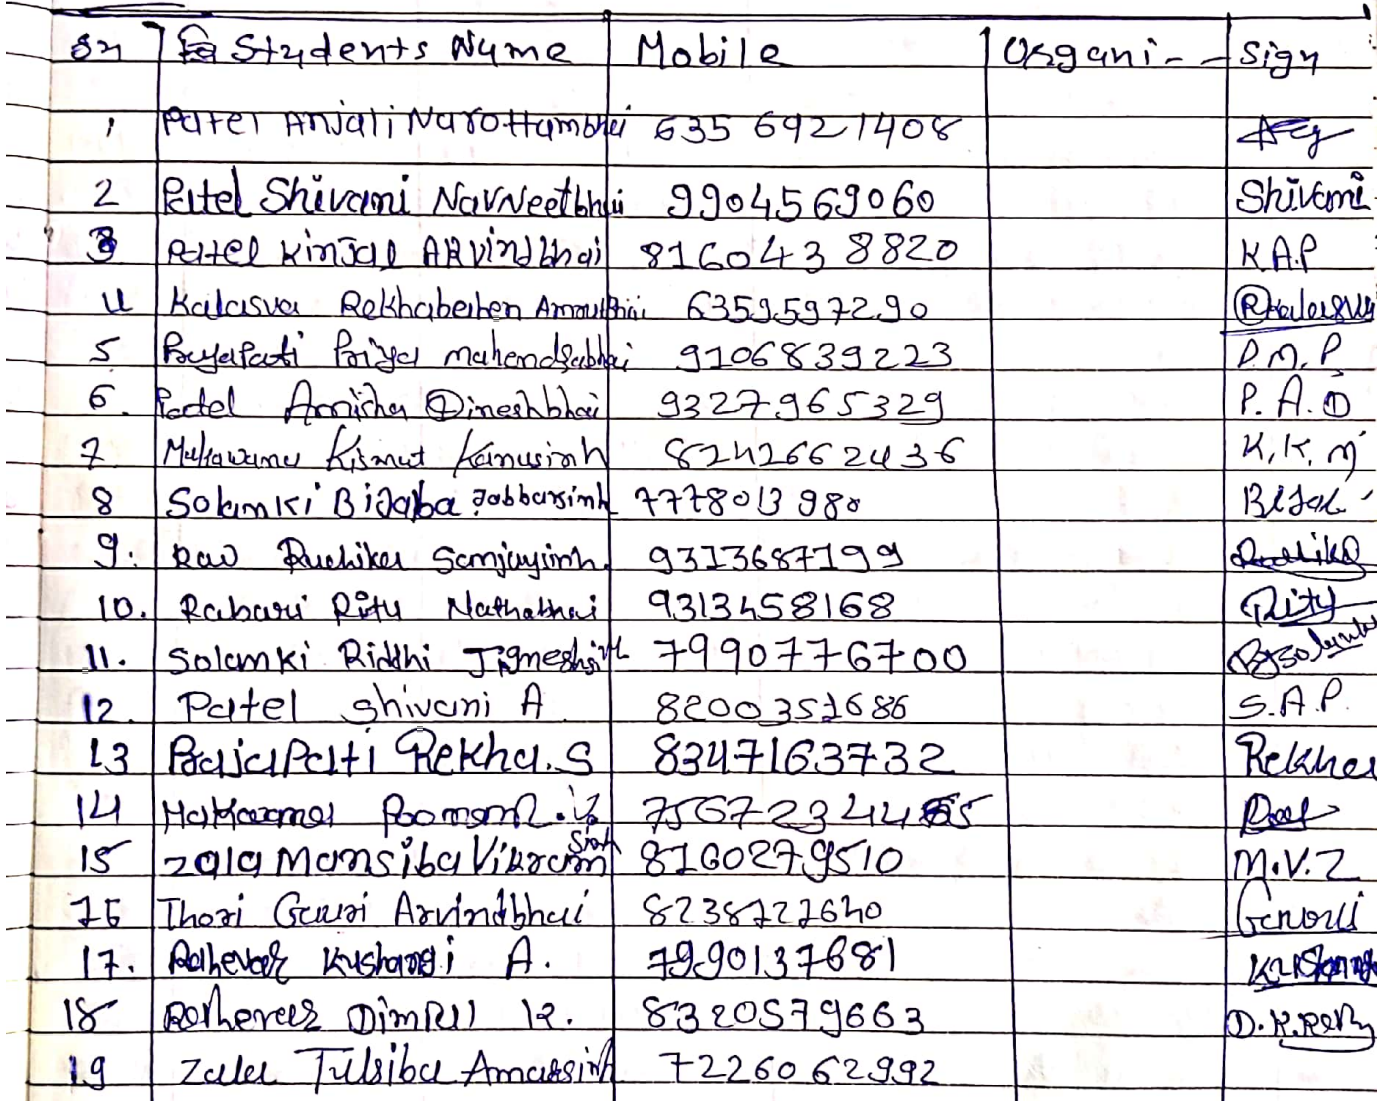 Sn Students Name Mobile Organi-- Sign
1 Patel Anjali Narottambhai 635 6921408
2 Patel Shivani Navneetbhai 9904569060 Shivani
3 Patel Kinjal ARvindbhai 816043 8820 K.A.P
4 Kalasva Rekhabehen 6359597290 Rkalasva
5 Prajapati Priya mahendrabhai 9106839223 P.M.P
6. Patel Amisha Dineshbhai 9327965329 P.A.D
7 Makawana Kismat Kanusinh 8242662436 K.K.M
8 Solanki Bijalba Jabbarsinh 7778013980 Bijal
9. Rav Ruchika Sanjaysinh 9313687199 Ruchika
10. Rabari Ritu Nathabhai 9313458168 Ritu
11. Solanki Riddhi Jigneshsinh 7990776700 Rjsolanki
12. Patel Shivani A 8200351686 S.A.P.
13 PrajaPati Rekha.S 8347163732 Rekha
14 Poonam
15 zala Mansiba Vikramsinh 8160279510 M.V.Z
16 Thori Gauri Arvindbhai 8238121640 Gauri
17. Rahevar Kushangi A. 7990137681 Kushangi
18 Rahevar DimPll K. 8320579663 D.K.
19 Zala Tulsiba Amarsinh 72260 62992